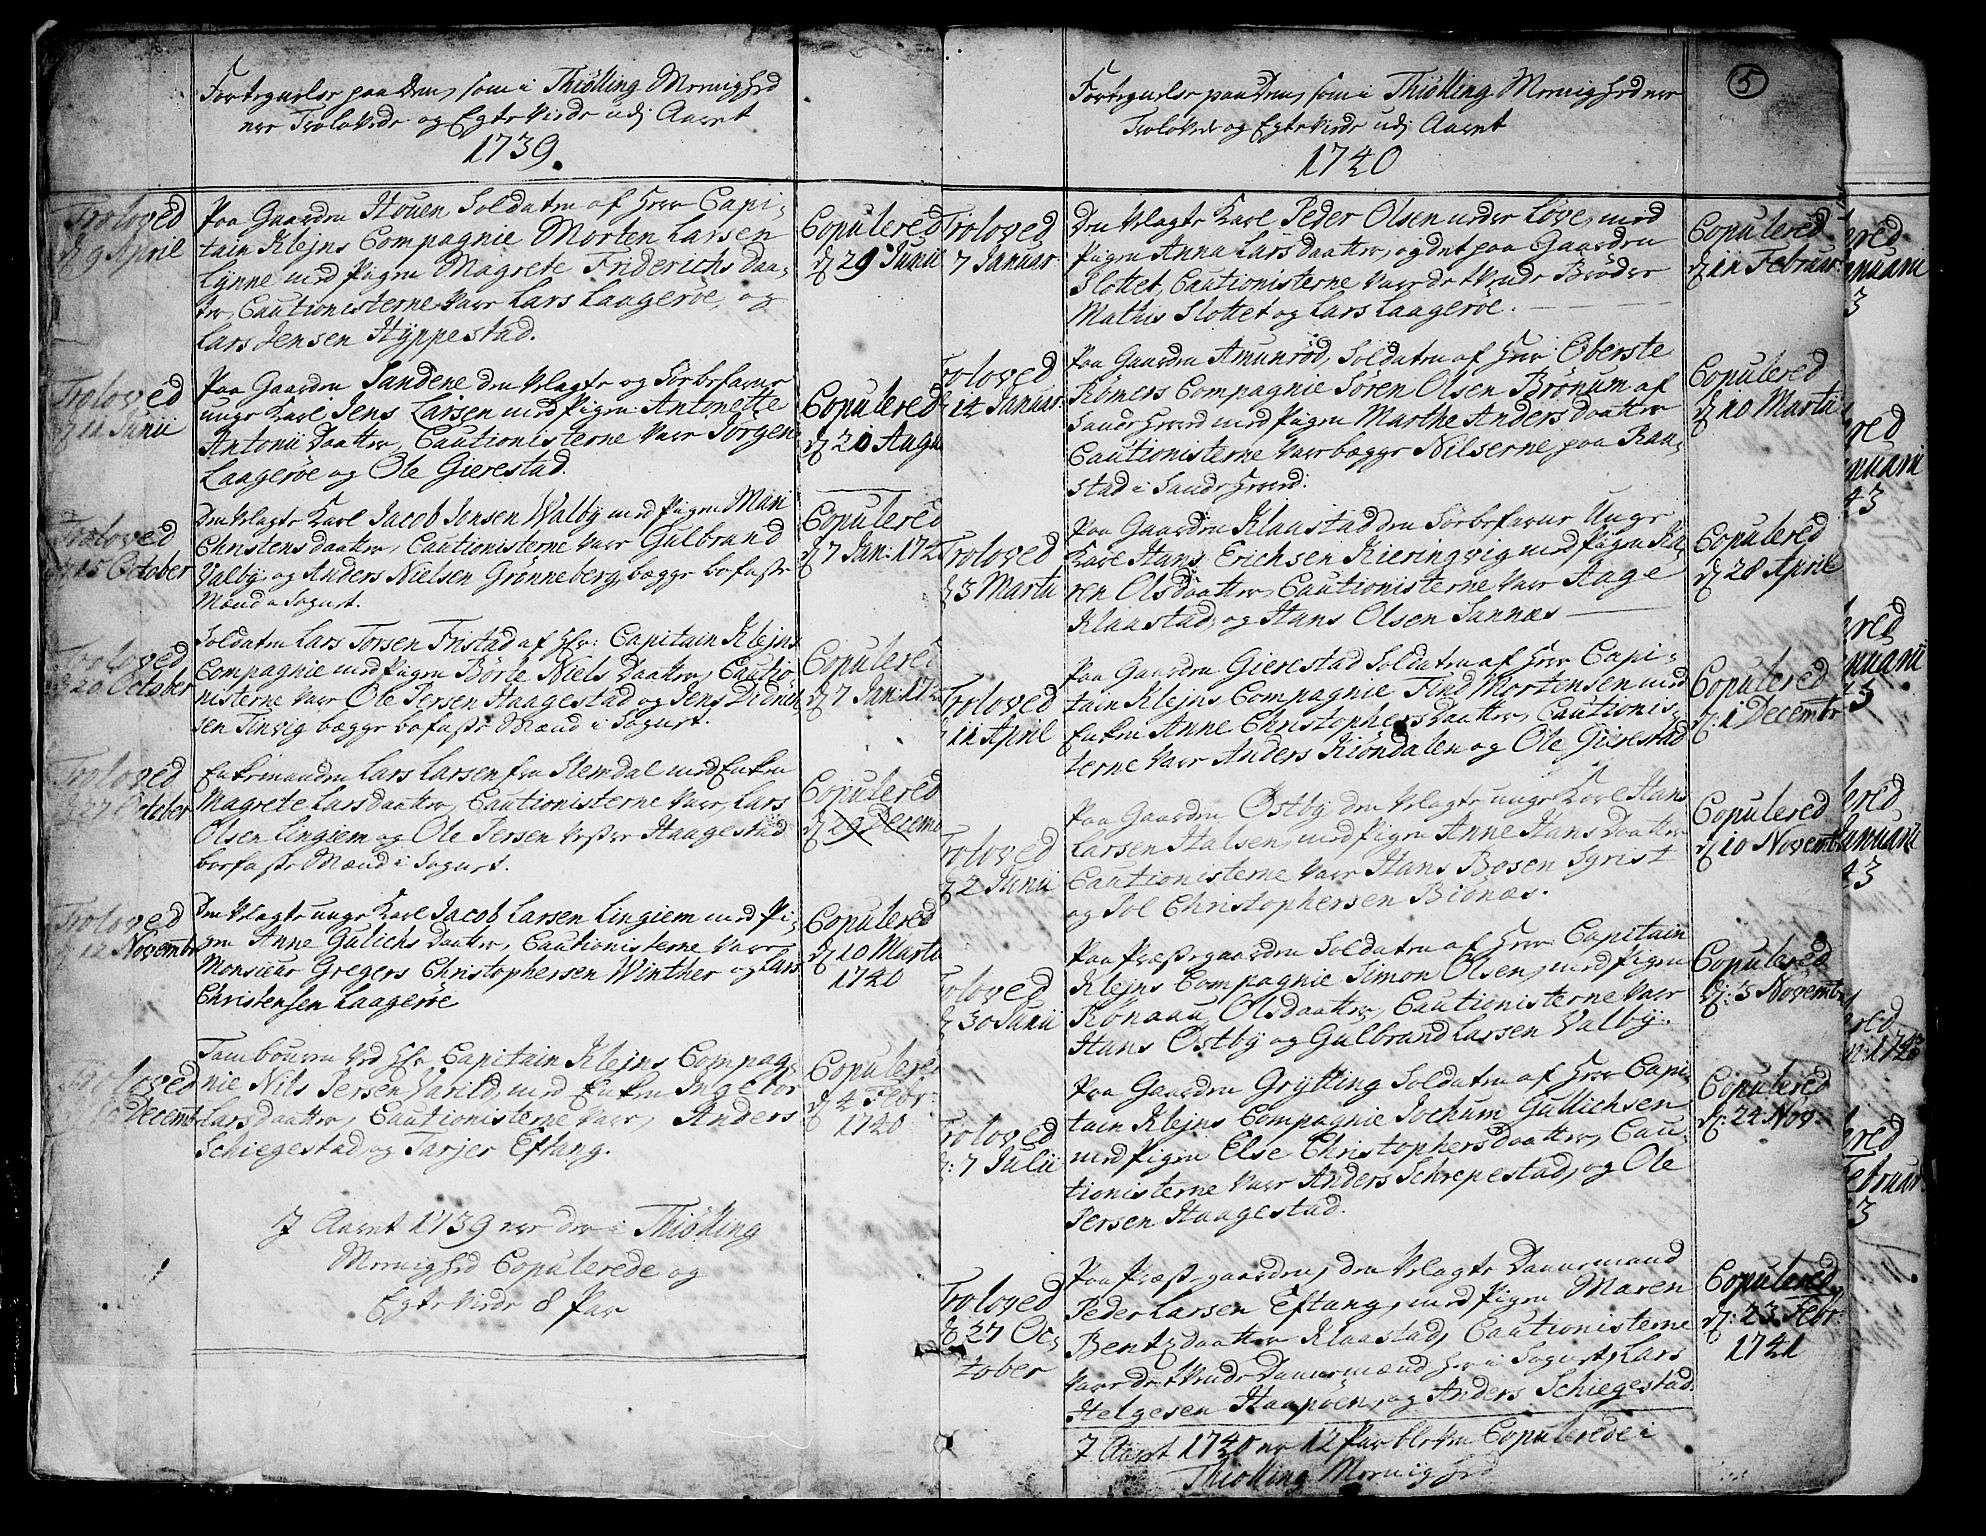 Fortegnelse paa Dem, som i Thiölling Menighed
ere Trolovede og Egteviede udj Aaret
1739.
Troloved
d 9 April
Paa Gaarden Houen Soldaten af Herr Capi-
tain Klejns Compagnie Morten Larsen
Lynne med Pigen Magrete Friderichs Daa-
ter, Cautionisterne varr Lars Laageröe, og
Lars Jensen Hyppestad.
Copulered
d 29 Junii
Troloved
d 11 Junii
Paa Gaarden Sandene den Velagte og Sörbefarne
unge Karl Jens Larsen med Pigen Antonette
Antonii Daatter, Cautionisterne varr Jörgen
Laageröe og Ole Gierestad.
Copulered
d 20 Augu
Troloved
d 15 October
Den Velagte Karl Jacob Jonsen Walby med Pigen Mari
Christens daatter, Cautionisterne varr Gulbrand
Valby, og Anders Nielsen Grönneberg, begge bofaste
Mænd i Sognet.
Copulered
d 7 Jan: 174
Troloved
d 20 October
Soldaten Lars Torsen Fristad af Hr: Capitain Klejns
Compagnie med Pigen Börte Niels Daatter, Cautio-
nisterne varr Ole Jersen Haagestad og Jens Didrich
sen Tinvig begge bofaste Mænd i Sognet.
Copulered
d 7 Jan: 174
Troloved
d 27 October
Enkemanden Lars Larsen fra Slemdal med Enken
Magrete Lars daatter, Cautionisterne varr, Lars
Olsen Lingiem og Ole Persen Vester Haagestad
bofaste Mænd i Sognet.
Copulered
d 29 Decemb
Troloved
d 12 Novembr
Den Velagte unge Karl Jacob Larsen Lingiem med Pi-
gen Anne Gulichs Daatter, Cautionisterne varr
Monsieur Gregers Christophersen Winther og Lars
Christensen Laageröe
Copulered
d 10 Martii
1740
Troloved
Decembr
Tambouren ved Hr Capitain Klejns Compag-
nie Nils Jersen Varild, med Enken Ingebor
Larsdaatter, Cautionisterne varr, Anders
Schiegestad, og Tarjer Eftang.
Copulered
d 4 Febr:
1740
I Aaret 1739 ere der i Thiölling
Menighed Copulerede og
Egteviede 8 Par
5
Fortegnelse paa Dem, som i Thiölling Menighed ere
Trolovede og Egteviede udj Aaret
1740
Troloved
7 Januar
Den Velagte Karl Peder Olsen under Löve, med
Pigen Anna Lars daatter, og det paa Gaarden
Slottet, Cautionisterne varr de tvende Bröder
Mathis Slottet og Lars Laageröe.
Copulered
d 11 Februar
Troloved
14 Januar
Paa Gaarden Amunröd, Soldaten af Herr Oberste
Römers Compagnie Sören Olsen Brönum af
Sande Hered med Pigen Marthe Anders Daatter
Cautionisterne varr begge Nilserne paa Raa-
stad i Sande Hered.
Copulered
d 10 Martii
Troloved
d 3 Martii
Paa Gaarden Klaastad den Sörbefarne Unge
Karl Hans Erichsen Kieringvig med Pigen Ka-
ren Olsdaatter, Cautionisterne varr Aage
Klaastad, og Hans Olsen Sannæs
Copulered
d 28 April
Troloved
11 April
Paa Gaarden Gierestad Soldaten af Herr Capi-
tain Klejns Compagnie Find Mortensen med
Enken Anne Christophers Daatter, Cautionis-
terne varr Anders Kiöndalen og Ole Gierestad
Copulered
d: 1 Decembr
Troloved
d 2 Junii
Paa Gaarden Östby den Velagte unge Karl Hans
Larsen Halsen, med Pigen Anne Hans Daatter
Cautionisterne varr Hans Bosen Sgrist
og Sol Christophersen Biönæs.
Copulered
d 10 Novembr
Troloved
d 30 Junii
Paa Præstegaarden Soldaten af Herr Capitain
Klejns Compagnie Simon Olsen, med Pigen
Rönaau Olsdaatter, Cautionisterne varr
Hans Östby og Gulbrand Larsen Valby.
Copulered
d: 3 Novembr
Troloved
d: 7 Julii
Paa Gaarden Grytting Soldaten af Herr Capi-
tain Klejns Compagnie Jochum Gullichsen
med Pigen Else Christophersdaatter, Cau-
tionisterne varr Anders Schrepestad, og Ole
Persen Haagestad.
Copulered
d: 24 Nov:
Troloved
d 27 Oc-
tober
Paa Præstegaarden, den Velagte Dannemand
Peder Larsen Eftang, med Pigen Maren
Bentzdaatter Klaastad, Cautionisterne
varr de tvende Dannemænd her i Sognet, Lars
Helgesen Haapöen, og Anders Schiegestad.
Copulered
d: 23 Febr:
1741
I Aaret 1740 er 12 Par bleven Copulerede i
Thiölling Menighed